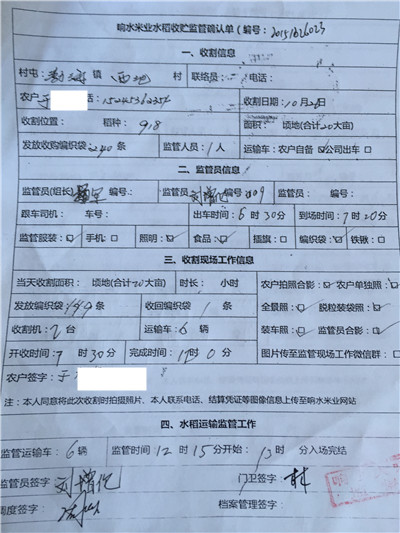 响水米业水稻收贮监管确认单(编号:20151026023
一、收割信息
村屯: 镇 西地 村 联络员: 电话:
农户于 话:15245362354 收割日期:10月26日
收割位置: 稻种:918 面积: 顷地(合计20大亩)
发放收购编织袋:240条 监管人员:1人 运输车:农户自备☑公司出车☐
二、监管员信息
监管员(组长) 编号: 监管员刘增亿编号:109
跟车司机: 车号: 出车时间:6时30分 到场时间:7时20分
监管服装:☑ 手机:☐ 照明:☑ 食品:☑ 插旗:☐ 编织袋:☑ 铁锹:☐
三、收割现场工作信息
当天收割面积: 顷地(合计20大亩) 时长: 小时 农户拍照合影:☑ 农户单独照:☐
发放编织袋 条 收回编织袋 1 条 全景照:☑ 脱粒装袋照:☑
收割机:2台 运输车:6辆 装车照:☑ 监管员合影:☑
开收时间:7时30分 完成时间:12时0分 图片传至监管现场工作微信群:☐
农户签字:于
注:本人同意将此次收割时拍摄照片、本人联系电话、结算凭证等图像信息上传至响水米业网站
四、水稻运输监管工作
监管运输车:6辆 监管时间12时15分开始:13时 分入场完结
监管员签字:刘增亿 门卫签字:林
调度签字: 档案管理签字: